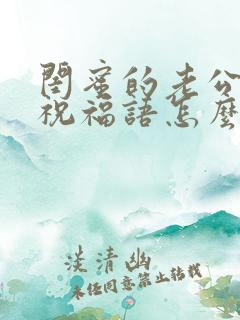 閨蜜的老公
祝福語怎麼
淡清幽
未经同意禁止转载